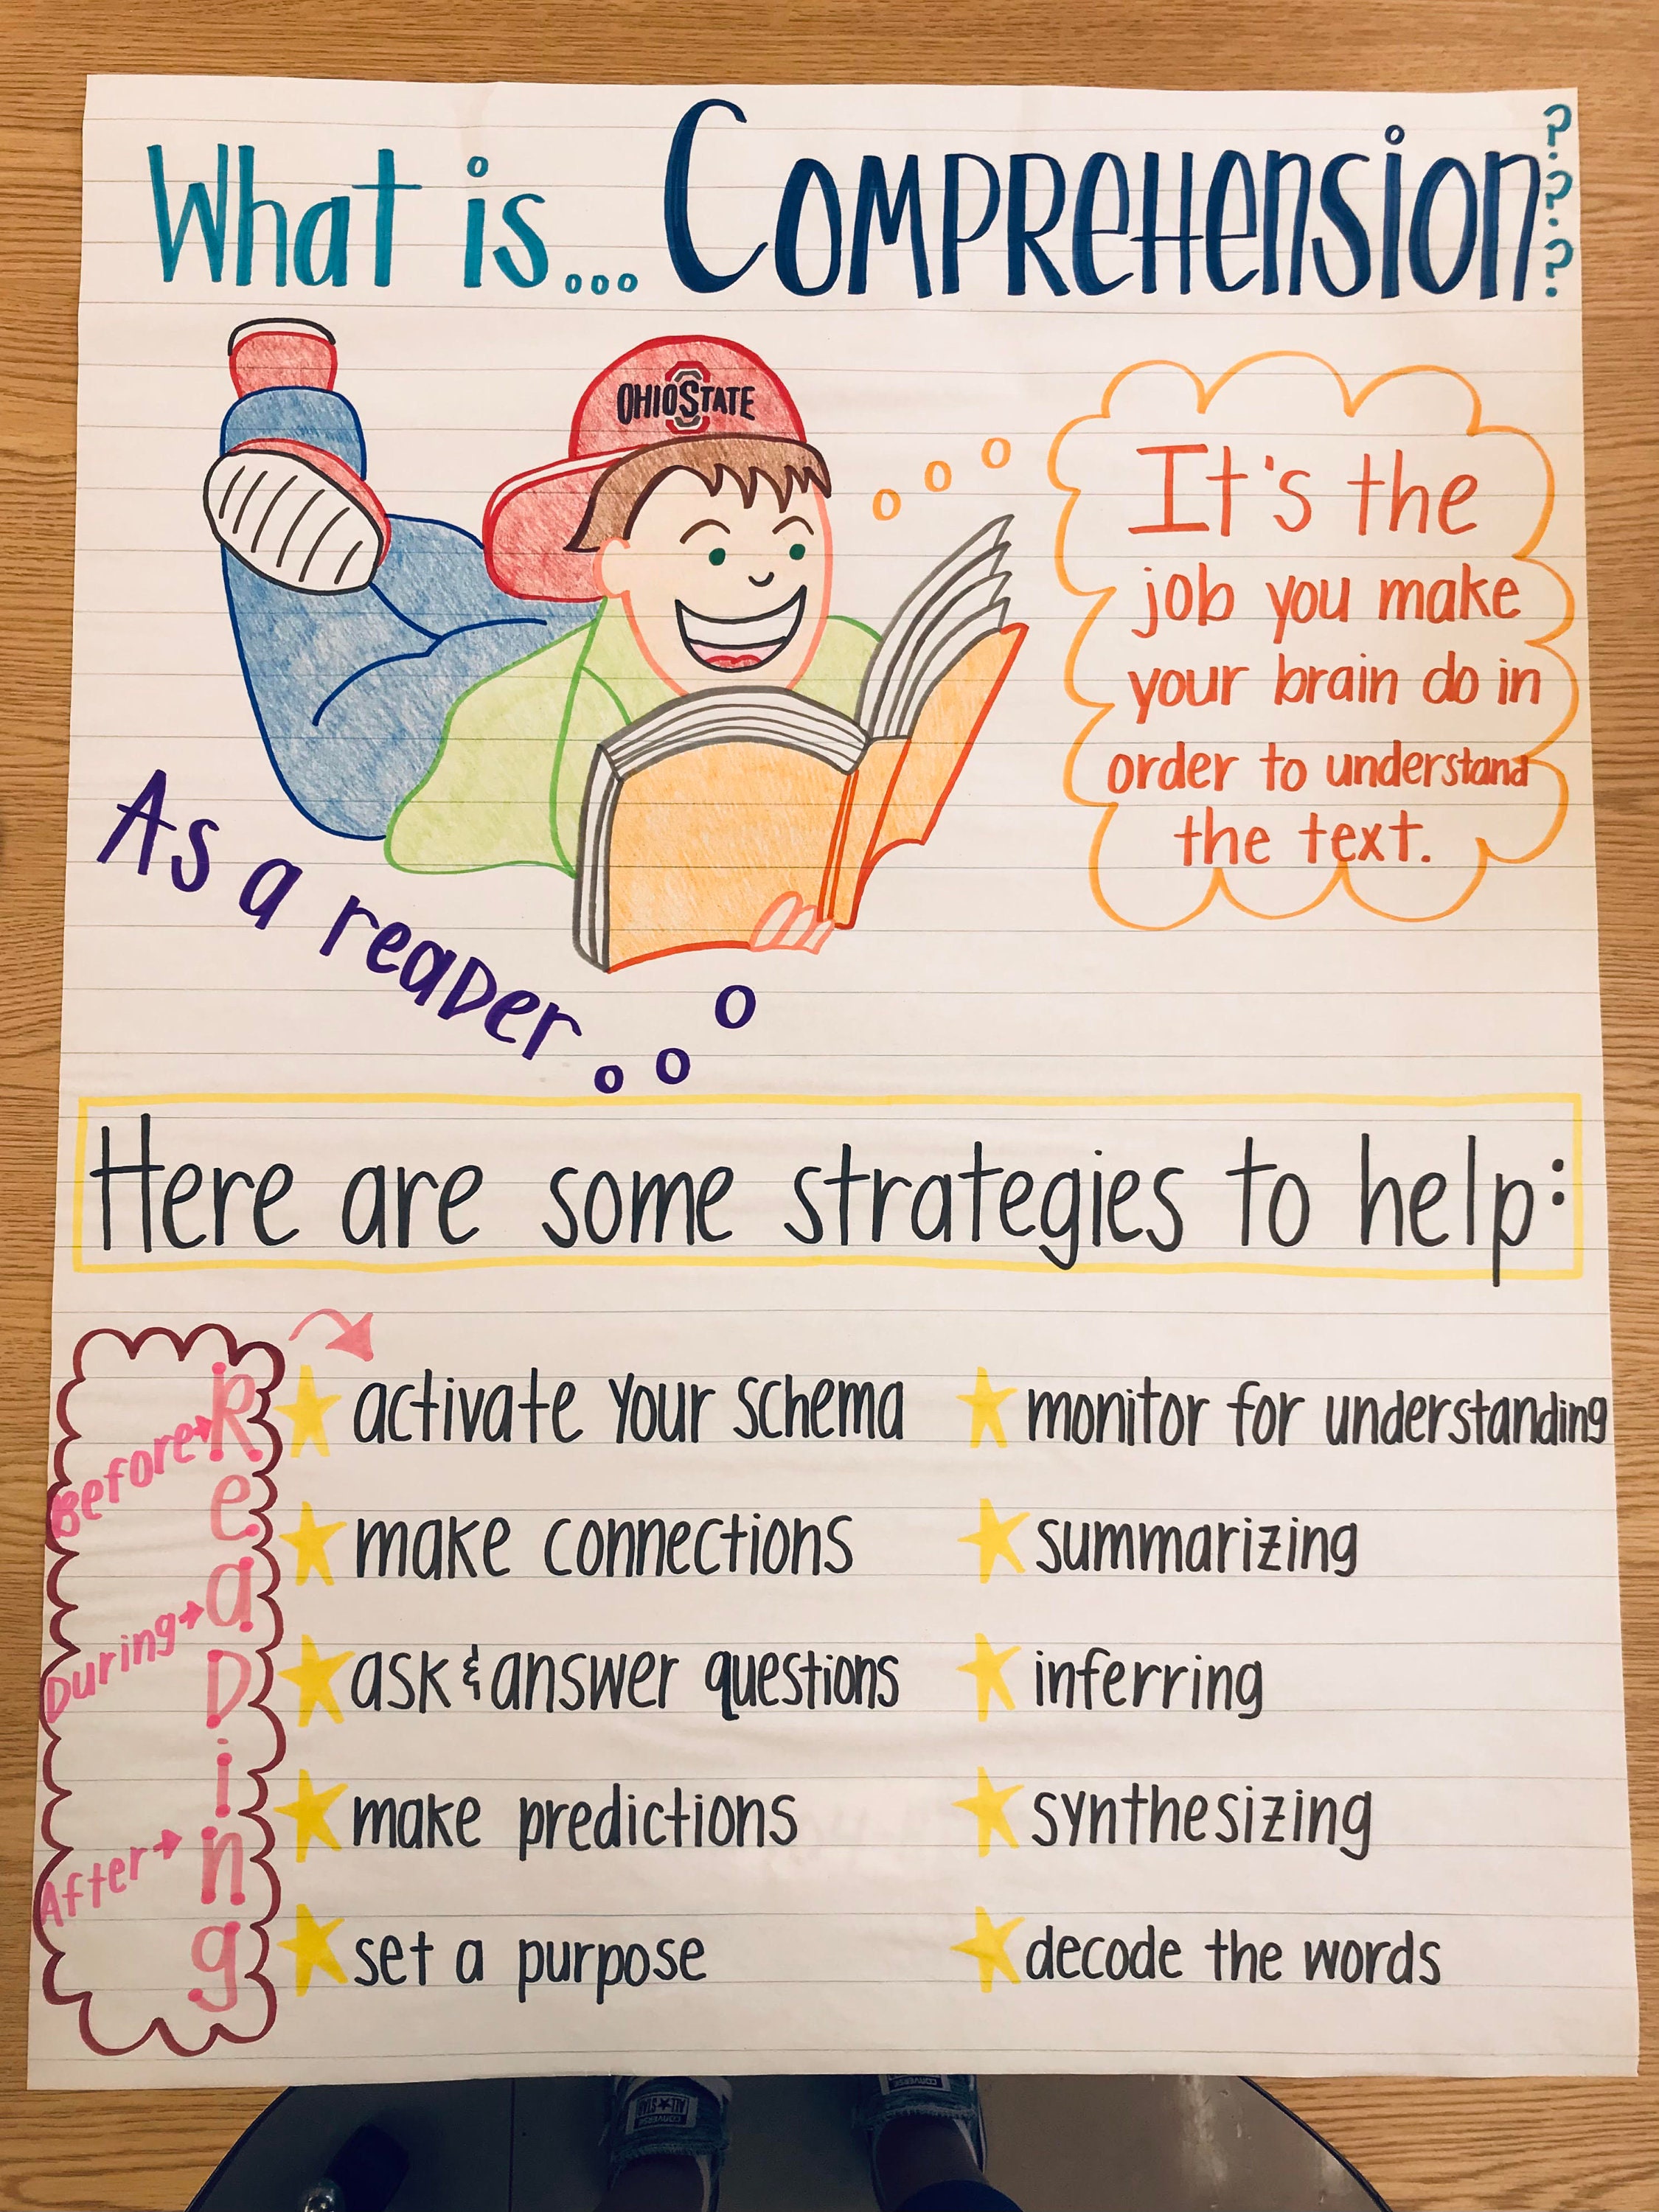 What is... Comprehension???
OHIO STATE
It's the
job you make
your brain do in
order to understand
the text.
As a reader...
Here are some strategies to help:
Before→
During→
After→
Reading
activate your schema
make connections
ask & answer questions
make predictions
set a purpose
monitor for understanding
summarizing
inferring
synthesizing
decode the words
CONVERSE
ALL ★ STAR
CONVERSE